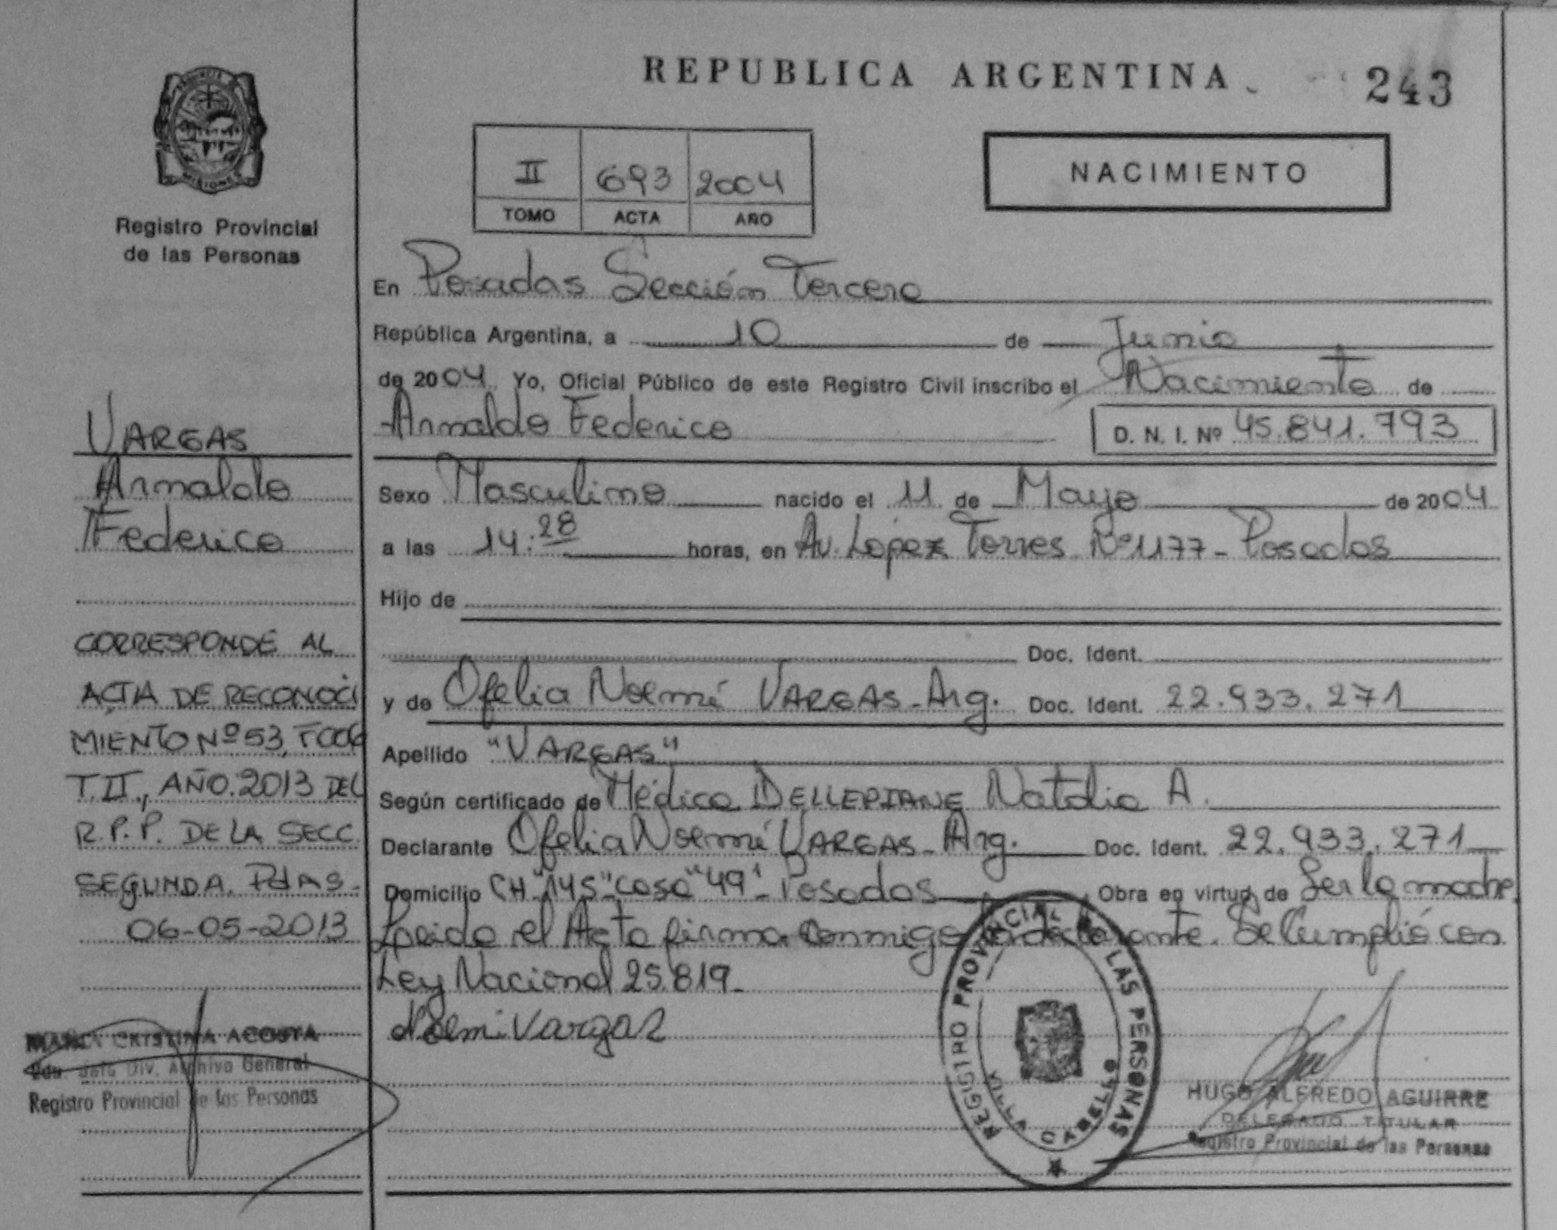 REPUBLICA ARGENTINA
243
II 693 2004
TOMO ACTA AÑO
NACIMIENTO
MISIONES
Registro Provincial
de las Personas
En Posadas Sección Tercera
República Argentina, a 10 de Junio
de 2004 Yo, Oficial Público de este Registro Civil inscribo el Nacimiento de
Arnaldo Federico D. N. I. Nº 45.841.793
Sexo Masculino nacido el 11 de Mayo de 2004
a las 14:28 horas, en Av. López Torres Nº 1177 - Posadas
Hijo de
Doc. Ident.
y de Ofelia Noemí VARGAS - Arg. Doc. Ident. 22.933.271
Apellido "VARGAS"
Según certificado de Médica DELLEPIANE Natalia A.
Declarante Ofelia Noemí VARGAS - Arg. Doc. Ident. 22.933.271
Domicilio CH "145" casa "49" - Posadas Obra en virtud de Ser la madre
Leido el Acta firma conmigo la declarante. Se Cumplió con
Ley Nacional 25.819 -
Noemi Vargas
VARGAS
Arnaldo
Federico
CORRESPONDE AL
ACTA DE RECONOCI
MIENTO Nº 53, Fº 006
T. II, AÑO 2013 DEL
R.P.P. DE LA SECC
SEGUNDA Pdas -
06-05-2013
MARIA CRISTINA ACOSTA
Div. Archivo General
Registro Provincial de las Personas
REGISTRO PROVINCIAL DE LAS PERSONAS
VILLA CABELLO
HUGO ALFREDO AGUIRRE
DELEGADO TITULAR
Registro Provincial de las Personas